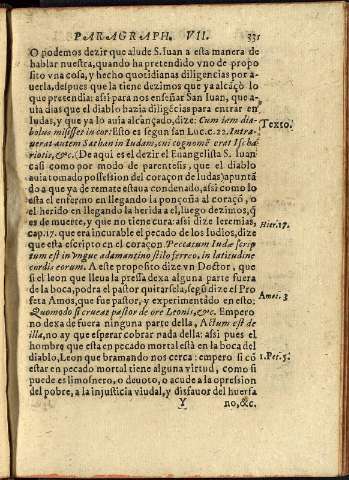 PARAGRAPH. VII. 331
O podemos dezir que alude S. Iuan a esta manera de
hablar nuestra, quando ha pretendido vno de propo
sito vna cosa, y hecho quotidianas diligencias por a-
uerla, despues que la tiene dezimos que ya alcãçò lo
que pretendia: assi para nos enseñar San Iuan, que a-
uia dias que el diablo hazia diligẽcias para entrar en
Iudas, y que ya lo auia alcançado, dize: Cum iam dia-
bolus misisset in cor: Esto es segun san Luc. c. 22. Intra-
Texto.
uerat autem Sathan in Iudam, cui cognomẽ erat Isch-
riotis, &c. (De aqui es el dezir el Euangelista S. Iuan
casi como por modo de parentesis, que el diablo
auia tomado possession del coraçon de Iudas) apuntã
do a que ya de remate estaua condenado, assi como lo
esta el enfermo en llegando la ponçoña al coraçõ, o
el herido en llegando la herida a el, luego dezimos, q̃
es de muerte, y que no tiene cura: assi dize Ieremias,
cap. 17. que era incurable el pecado de los Iudios, dize
Hier. 17.
que esta escripto en el coraçon. Peccatum Iudæ scrip
tum est in vngue adamantino stilo ferreo, in latitudine
cordis eorum. A este proposito dize vn Doctor, que
si el leon que lleua la presa dexa alguna parte fuera
de la boca, podra el pastor quitarsela, segũ dize el Pro
feta Amos, que fue pastor, y experimentado en esto:
Amos. 3
Quomodo si erueat pastor de ore Leonis, &c. Empero
no dexa de fuera ninguna parte della, Actum est de
illa, no ay que esperar cobrar nada della: assi pues el
hombre que esta en pecado mortal està en la boca del
diablo, Leon que bramando nos cerca: empero si cõ
1. Pet. 5.
estar en pecado mortal tiene alguna virtud, como si
puede es limosnero, o deuoto, o acude a la opresion
del pobre, a la injusticia viudal, y disfauor del huerfa
Y no, &c.